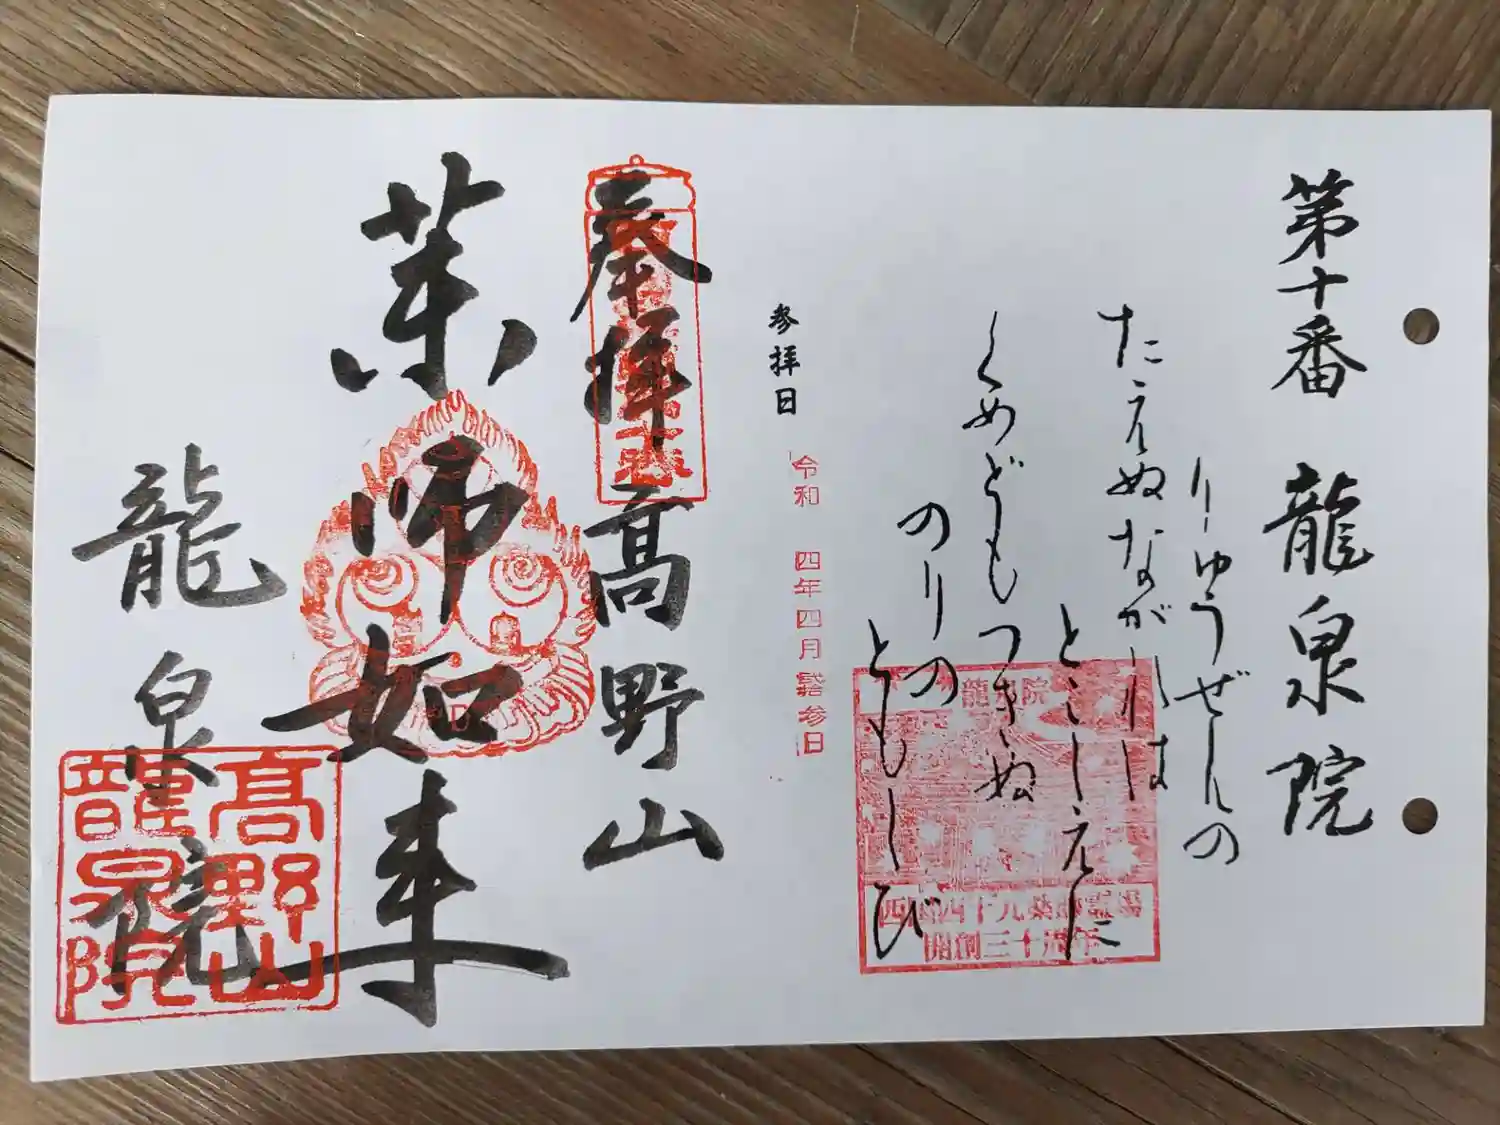 第十番 龍泉院
りゆうぜんの
たえぬながれは
とこしえに
くめどもつきぬ
のりの
ともしび
龍泉院
西国四十九薬師霊場
開創三十周年
参拝日
令和 四年四月 参日
奉拝 高野山
薬師如来
龍泉院
高野山
龍泉院